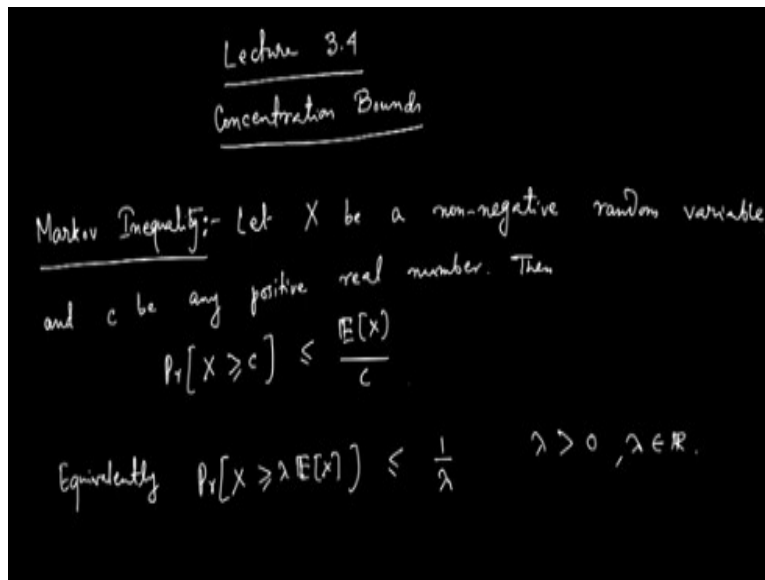 Lecture 3.4
Concentration Bounds
Markov Inequality:- Let X be a non-negative random variable
and c be any positive real number. Then
Pr[X ⩾ c] ⩽ 𝔼[X]/c
Equivalently Pr[X ⩾ λ 𝔼[X]] ⩽ 1/λ λ > 0, λ ∈ ℝ.